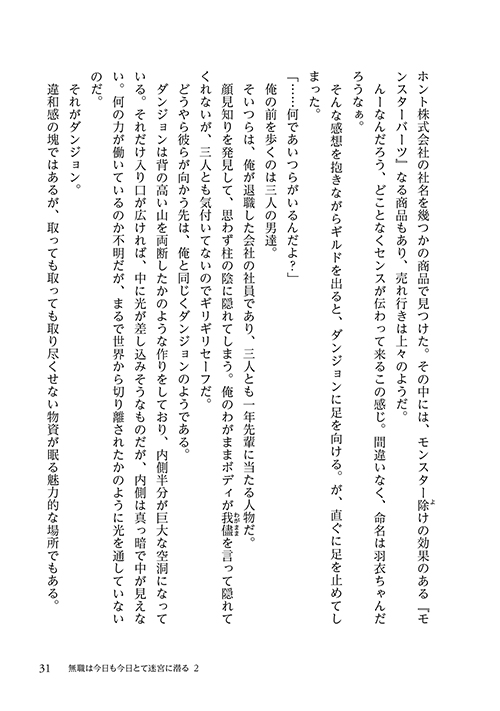 ホント株式会社の社名を幾つかの商品で見つけた。その中には、モンスター除けの効果のある『モ
ンスターバーツ』なる商品もあり、売れ行きは上々のようだ。
んーなんだろう、どことなくセンスが伝わって来るこの感じ。間違いなく、命名は羽衣ちゃんだ
ろうなぁ。
そんな感想を抱きながらギルドを出ると、ダンジョンに足を向ける。が、直ぐに足を止めてし
まった。
「……何であいつらがいるんだよ？」
俺の前を歩くのは三人の男達。
そいつらは、俺が退職した会社の社員であり、三人とも一年先輩に当たる人物だ。
顔見知りを発見して、思わず柱の陰に隠れてしまう。俺のわがままボディが我儘を言って隠れて
くれないが、三人とも気付いてないのでギリギリセーフだ。
どうやら彼らが向かう先は、俺と同じくダンジョンのようである。
ダンジョンは背の高い山を両断したかのような作りをしており、内側半分が巨大な空洞になって
いる。それだけ入り口が広ければ、中に光が差し込みそうなものだが、内側は真っ暗で中が見えな
い。何の力が働いているのか不明だが、まるで世界から切り離されたかのように光を通していない
のだ。
それがダンジョン。
違和感の塊ではあるが、取っても取っても取り尽くせない物資が眠る魅力的な場所でもある。
31 無職は今日も今日とて迷宮に潜る 2